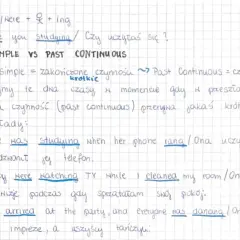 /Here + + ing
you studying / Czy uczyłaś się?
MPLE VS PAST CONTINUOUS
Simple = zakończone czynności Past Continuous = cz
krótkie
my te dwa czasy w momencie gdy w przeszł
czynność (past continuous) przerywa jakaś krót
łady:
was studying when her phone rang / Ona uczy
dzwonił jej telefon.
were watching TV while I cleaned my room / On
podczas gdy sprzątałam swój pokój.
arrived at the party, and everyone was dancing / On
imprezę, a wszyscy tańczyli.